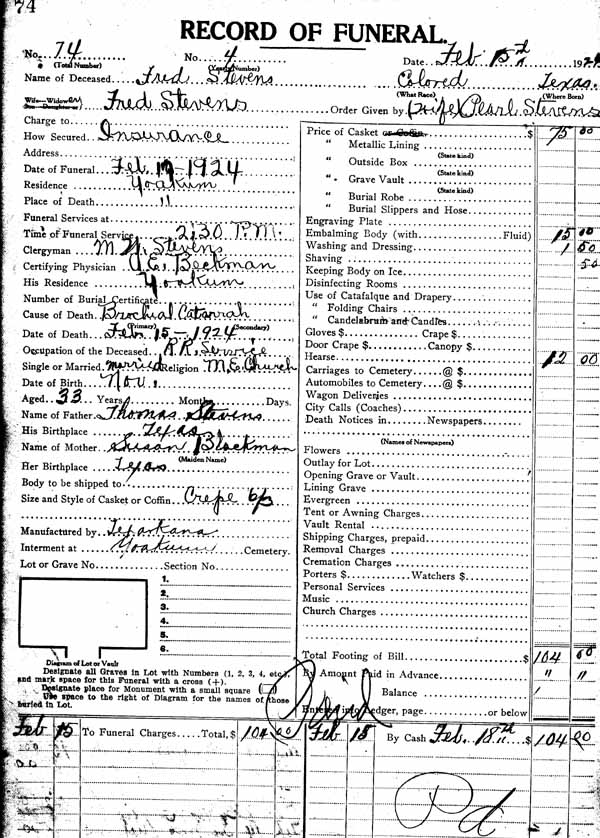 74
RECORD OF FUNERAL.
No. 74 No. 4 Date Feb 15
(Total Number) (Yearly Number)
Name of Deceased Fred Stevens Colored Texas.
(What Race) (Where Born)
Wife—Widow Fred Stevens Order Given by (Wife) Pearl Stevens
Charge to
How Secured Insurance
Address
Date of Funeral Feb. 1924
Residence Yoakum
Place of Death "
Funeral Services at
Time of Funeral Service 2:30 P.M.
Clergyman M. Stevens
Certifying Physician Beckman
His Residence Yoakum
Number of Burial Certificate
Cause of Death Brochial Catarrah
(Primary) (Secondary)
Date of Death Feb. 15 - 1924
Occupation of the Deceased R.R. Service
Single or Married married Religion M.E. Church
Date of Birth Nov.
Aged 33 Years Months Days.
Name of Father Thomas Stevens
His Birthplace Texas
Name of Mother Susan Blackman
(Maiden Name)
Her Birthplace Texas
Body to be shipped to
Size and Style of Casket or Coffin Crepe 6/3
Manufactured by Texarkana
Interment at Yoakum Cemetery.
Lot or Grave No. Section No.
1.
2.
3.
4.
5.
6.
Diagram of Lot or Vault
Designate all Graves in Lot with Numbers (1, 2, 3, 4, etc.)
and mark space for this Funeral with a cross (+).
Designate place for Monument with a small square
Use space to the right of Diagram for the names of those
buried in Lot.
Price of Casket or Coffin $ 75 00
" Metallic Lining
(State kind)
" Outside Box
(State kind)
" Grave Vault
(State kind)
" Burial Robe
" Burial Slippers and Hose
Engraving Plate
Embalming Body (with Fluid) 15 00
Washing and Dressing 1 50
Shaving 50
Keeping Body on Ice
Disinfecting Rooms
Use of Catafalque and Drapery
" Folding Chairs
" Candelabrum and Candles
Gloves $ Crape $
Door Crape $ Canopy $
Hearse 12 00
Carriages to Cemetery @ $
Automobiles to Cemetery @ $
Wagon Deliveries
City Calls (Coaches)
Death Notices in Newspapers
(Names of Newspapers)
Flowers
Outlay for Lot
Opening Grave or Vault
Lining Grave
Evergreen
Tent or Awning Charges
Vault Rental
Shipping Charges, prepaid
Removal Charges
Cremation Charges
Porters $ Watchers $
Personal Services
Music
Church Charges
Total Footing of Bill $ 104 00
By Amount Paid in Advance " "
Balance
Entered into Ledger, page or below
Feb 15 To Funeral Charges Total, $ 104 00 Feb 18 By Cash Feb. 18th $ 104 00
Pd